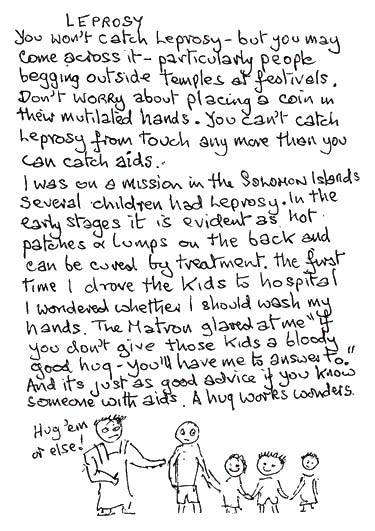 LEPROSY
You won't catch Leprosy - but you may
come across it - particularly people
begging outside temples at festivals.
Don't worry about placing a coin in
their mutilated hands. You can't catch
Leprosy from touch any more than you
can catch aids..
I was on a mission in the Solomon Islands
several children had Leprosy. In the
early stages it is evident as hot
patches or lumps on the back and
can be cured by treatment. The first
time I drove the kids to hospital
I wondered whether I should wash my
hands. The Matron glared at me "If
you don't give those kids a bloody
good hug - you'll have me to answer to."
And it's just as good advice if you know
someone with aids. A hug works wonders.
Hug 'em
or else!